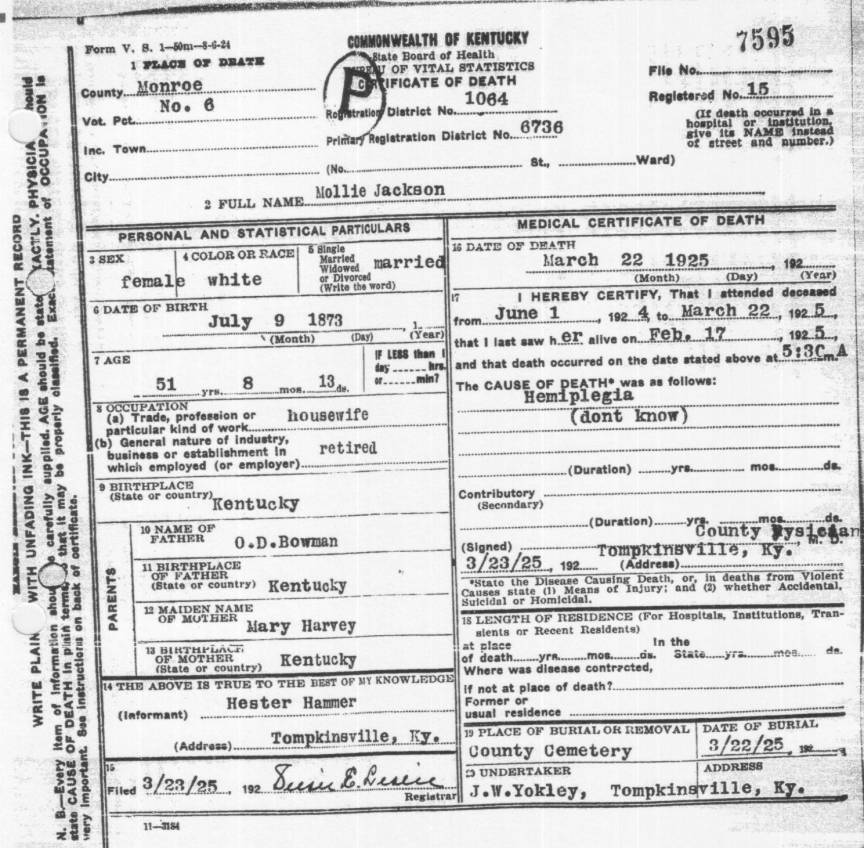 Form V. S. 1—50m—8-6-24
COMMONWEALTH OF KENTUCKY
State Board of Health
BUREAU OF VITAL STATISTICS
CERTIFICATE OF DEATH
P
7595
1 PLACE OF DEATH
County Monroe
No. 6
Vot. Pct.
Inc. Town
City
Registration District No. 1064
Primary Registration District No. 6736
(No. St., Ward)
File No.
Registered No. 15
(If death occurred in a
hospital or institution,
give its NAME instead
of street and number.)
2 FULL NAME Mollie Jackson
PERSONAL AND STATISTICAL PARTICULARS
3 SEX
female
4 COLOR OR RACE
white
5 Single
Married
Widowed
or Divorced
(Write the word)
married
6 DATE OF BIRTH
July 9 1873, 1
(Month) (Day) (Year)
7 AGE
51 yrs. 8 mos. 13 ds.
IF LESS than 1
day hrs.
or min?
8 OCCUPATION
(a) Trade, profession or
particular kind of work housewife
(b) General nature of industry,
business or establishment in
which employed (or employer) retired
9 BIRTHPLACE
(State or country) Kentucky
PARENTS
10 NAME OF
FATHER O.D.Bowman
11 BIRTHPLACE
OF FATHER
(State or country) Kentucky
12 MAIDEN NAME
OF MOTHER Mary Harvey
13 BIRTHPLACE
OF MOTHER
(State or country) Kentucky
14 THE ABOVE IS TRUE TO THE BEST OF MY KNOWLEDGE
(Informant) Hester Hammer
(Address) Tompkinsville, Ky.
15
Filed 3/23/25, 192
Registrar
11—3184
MEDICAL CERTIFICATE OF DEATH
16 DATE OF DEATH
March 22 1925, 192
(Month) (Day) (Year)
17 I HEREBY CERTIFY, That I attended deceased
from June 1, 192 4, to March 22, 192 5,
that I last saw h er alive on Feb. 17, 192 5,
and that death occurred on the date stated above at 5:30 A m.
The CAUSE OF DEATH* was as follows:
Hemiplegia
(dont know)
(Duration) yrs. mos. ds.
Contributory
(Secondary)
(Duration) yrs. mos. ds.
County
(Signed) M. D.
3/23/25, 192 (Address) Tompkinsville, Ky.
*State the Disease Causing Death, or, in deaths from Violent
Causes state (1) Means of Injury; and (2) whether Accidental,
Suicidal or Homicidal.
18 LENGTH OF RESIDENCE (For Hospitals, Institutions, Tran-
sients or Recent Residents)
at place In the
of death yrs. mos. ds. State yrs. mos. ds.
Where was disease contracted,
if not at place of death?
Former or
usual residence
19 PLACE OF BURIAL OR REMOVAL
County Cemetery
DATE OF BURIAL
3/22/25, 192
20 UNDERTAKER
J.W.Yokley,
ADDRESS
Tompkinsville, Ky.
WRITE PLAIN WITH UNFADING INK—THIS IS A PERMANENT RECORD
N. B.—Every item of information should be carefully supplied. AGE should be state EXACTLY. PHYSICIA should
state CAUSE OF DEATH in plain terms, so that it may be properly classified. Exact statement of OCCUPATION is
very important. See instructions on back of certificate.